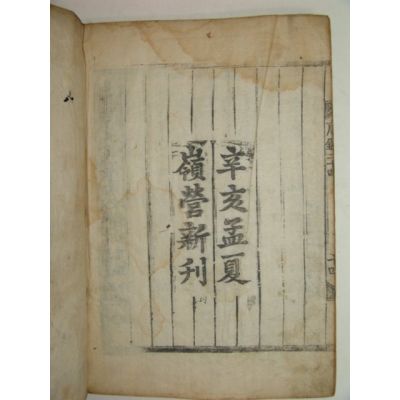 辛亥孟夏
嶺營新刊